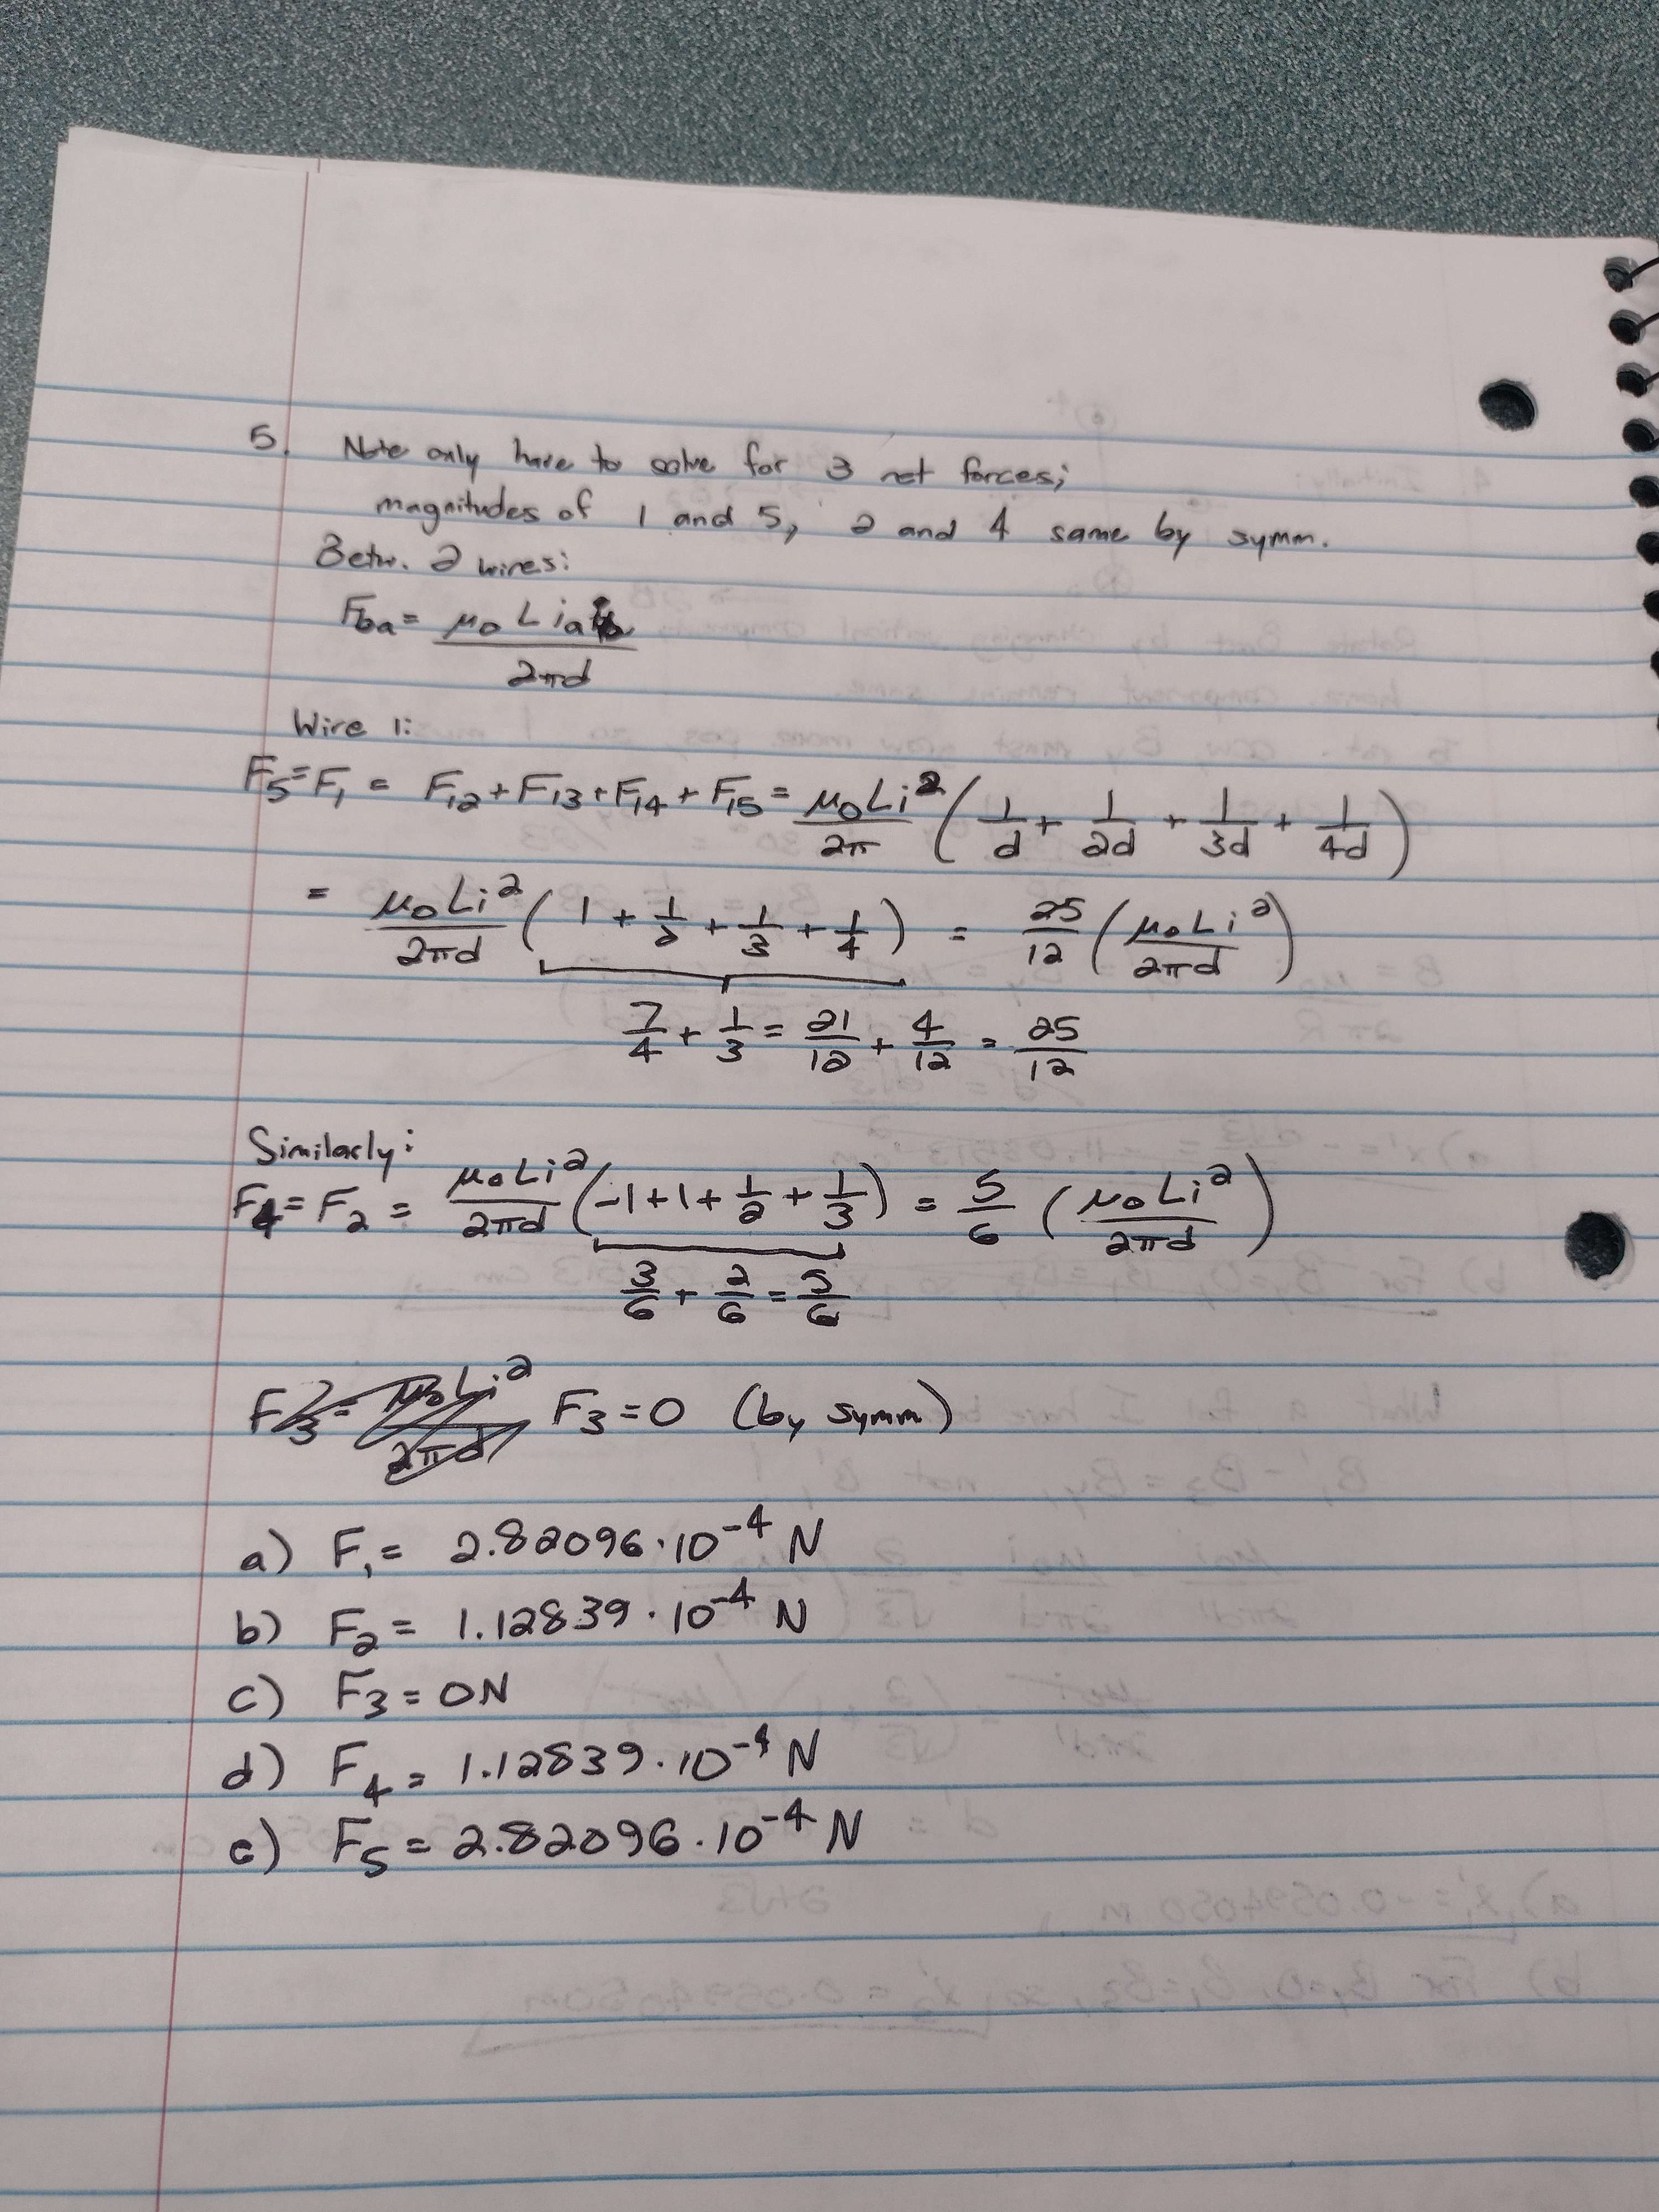 5. Note only have to solve for 3 net forces;
magnitudes of 1 and 5, 2 and 4 same by symm.
Betw. 2 wires:
Fba = μ0 L ia ib / 2πd
Wire 1:
F5 = F1 = F12 + F13 + F14 + F15 = μ0Li² / 2π (1/d + 1/2d + 1/3d + 1/4d)
= μ0Li² / 2πd (1 + 1/2 + 1/3 + 1/4) = 25/12 (μ0Li² / 2πd)
7/4 + 1/3 = 21/12 + 4/12 = 25/12
Similarly:
F4 = F2 = μ0Li² / 2πd (-1+1+ 1/2 + 1/3) = 5/6 (μ0Li² / 2πd)
3/6 + 2/6 = 5/6
F3 = μ0Li² / 2πd F3=0 (by symm)
a) F1 = 2.82096·10⁻⁴ N
b) F2 = 1.12839·10⁻⁴ N
c) F3 = 0N
d) F4 = 1.12839·10⁻⁴ N
e) F5 = 2.82096·10⁻⁴ N